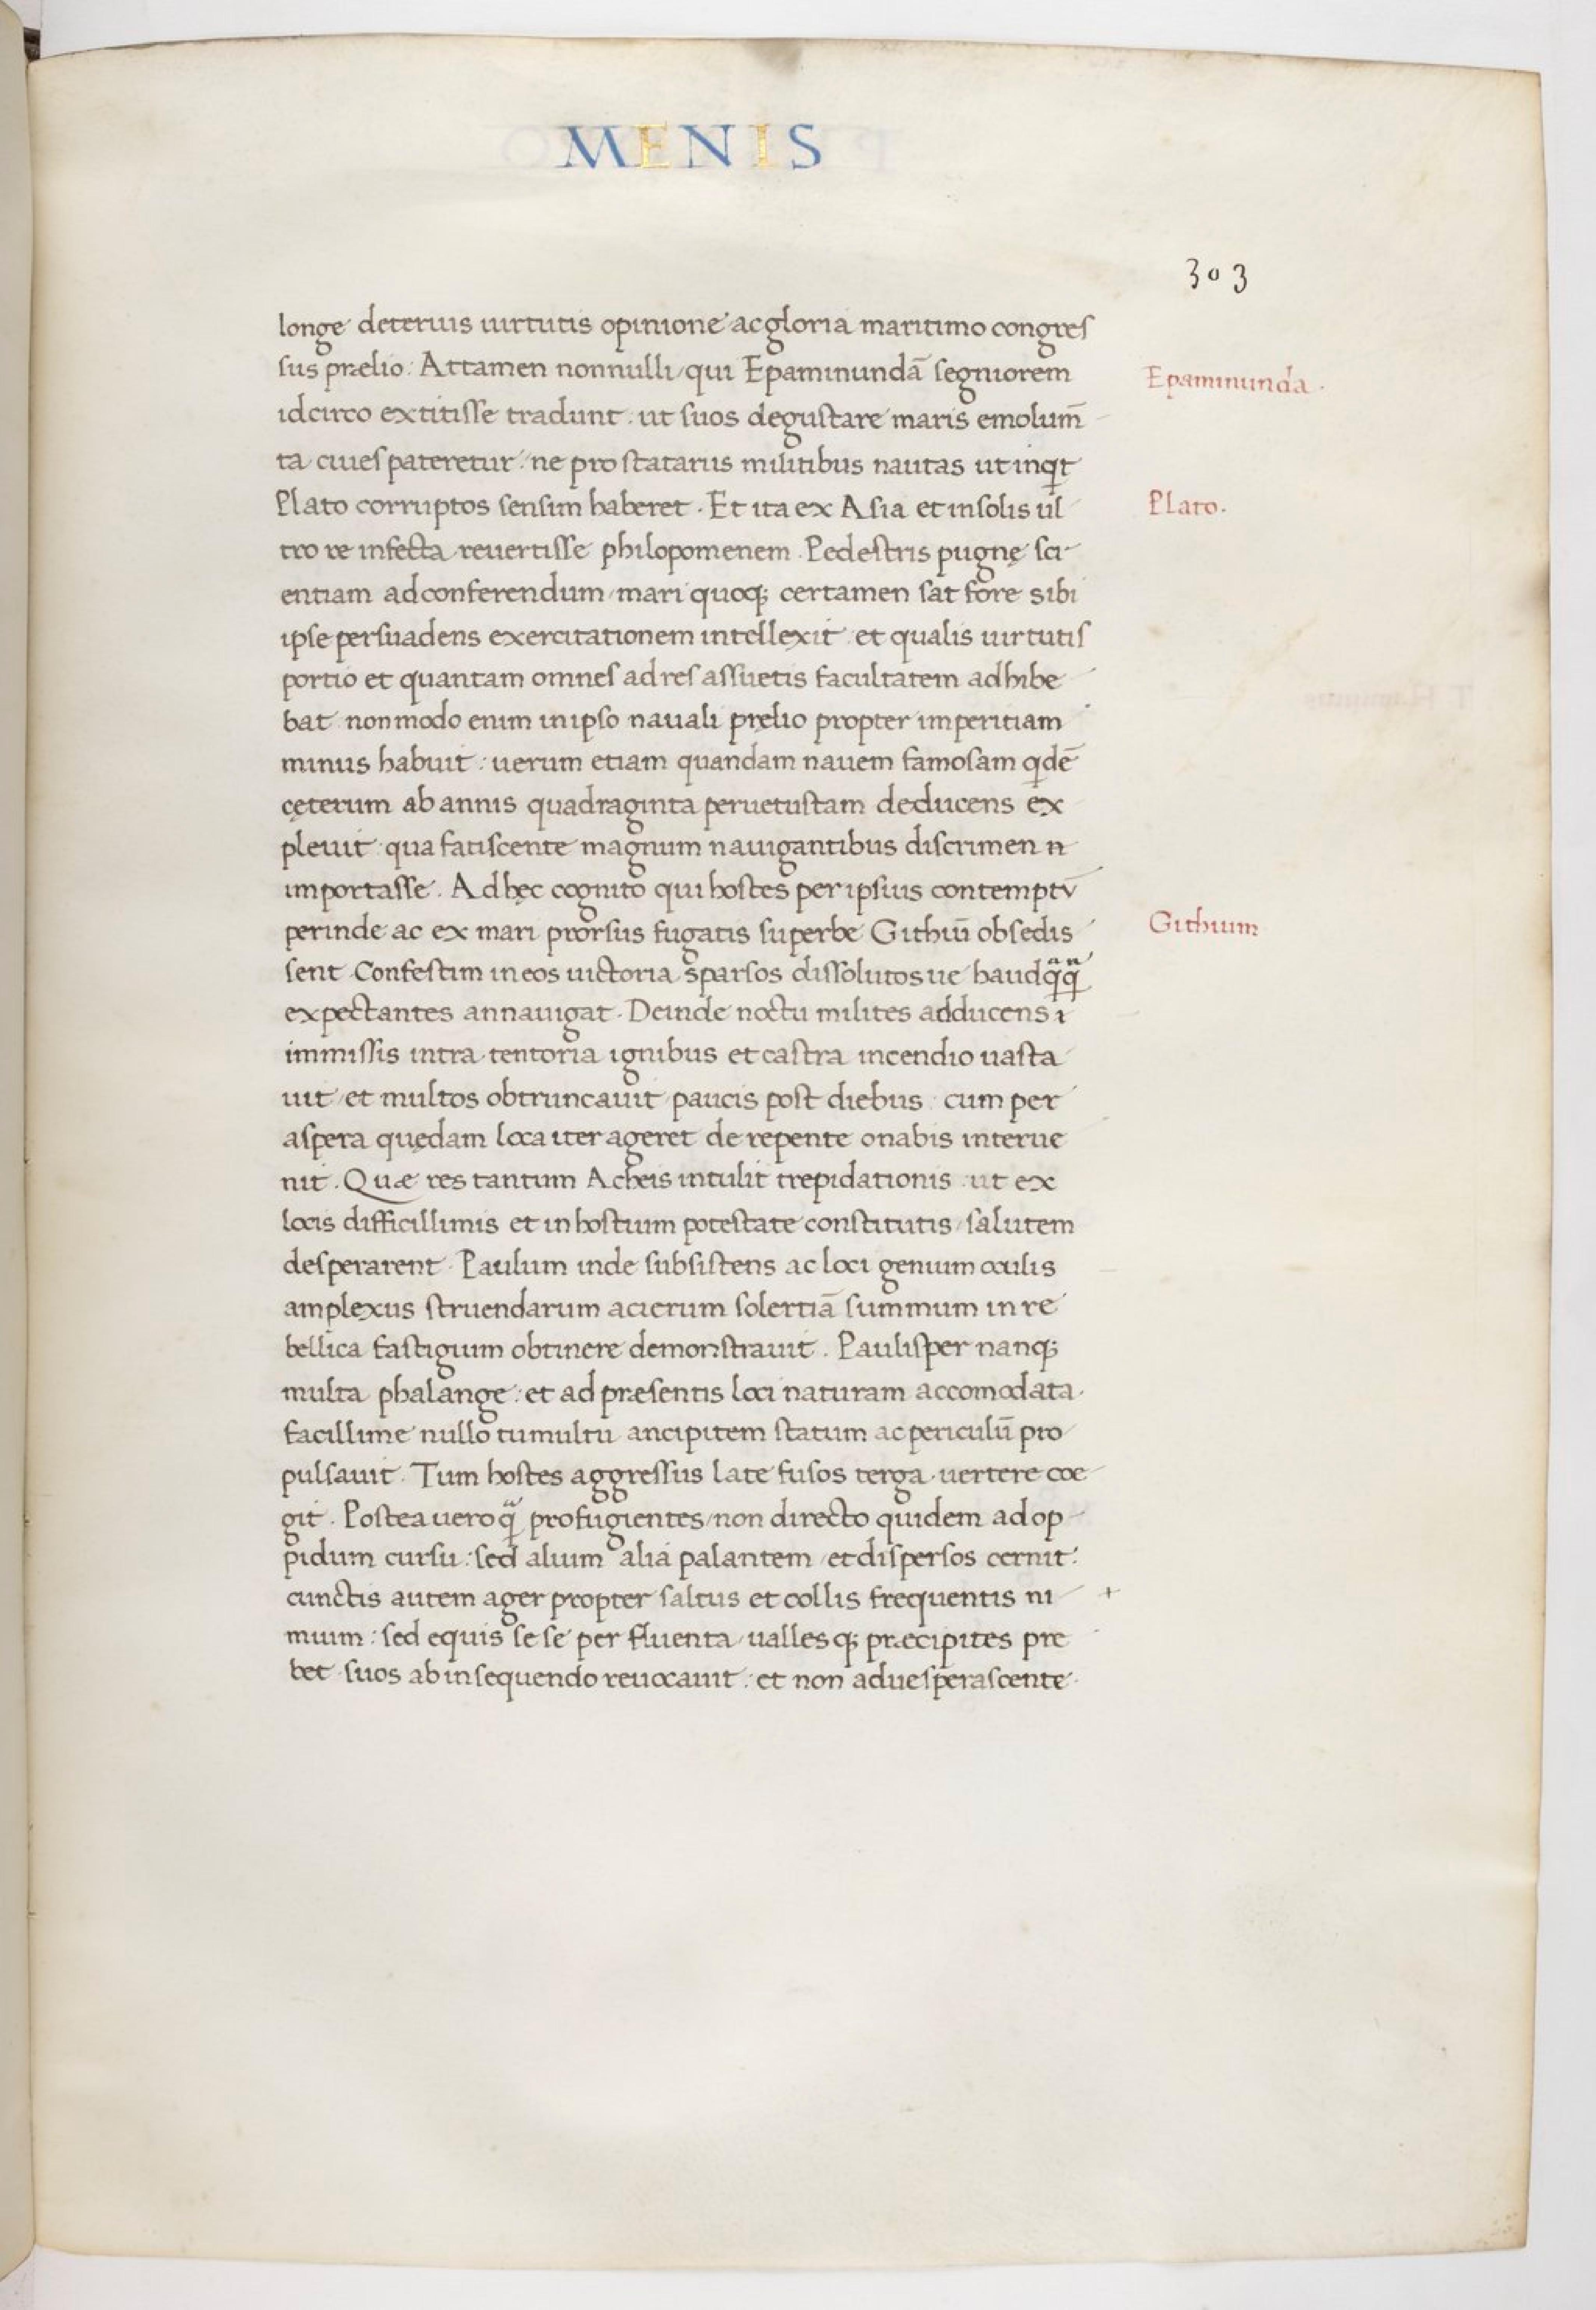 MENIS
303
longe deterius uirtutis opinione ac gloria maritimo congres
sus prælio: Attamen nonnulli, qui Epaminundā segniorem
Epaminunda.
idcirco extitisse tradunt: ut suos degustare maris emolum̄
ta ciues pateretur: ne pro statariis militibus nautas ut inqt
Plato corruptos sensim haberet. Et ita ex Asia et insolis ul
Plato.
tro re infecta reuertisse philopomenem. Pedestris pugnę sci-
entiam ad conferendum, mari quoq; certamen sat fore sibi
ipse persuadens exercitationem intellexit: et qualis uirtutis
portio et quantam omnes ad res assuetis facultatem adhibe
bat non modo enim in ipso nauali prelio propter imperitiam
minus habuit: uerum etiam quandam nauem famosam qdē
cęterum ab annis quadraginta peruetustam deducens ex
pleuit: qua fatiscente magnum nauigantibus discrimen n̄
importasse. Ad hęc cognito qui hostes per ipsius contemptū
perinde ac ex mari prorsus fugatis superbe Githiū obsedis
Githium
sent Confestim in eos uictoria sparsos dissolutosue haudqqᷓ
expectantes annauigat. Deinde noctu milites adducens
immissis intra tentoria ignibus et castra incendio uasta
uit, et multos obtruncauit paucis post diebus: cum per
aspera quędam loca iter ageret de repente onabis interue
nit. Quæ res tantum Acheis intulit trepidationis: ut ex
locis difficillimis et in hostium potestate constitutis, salutem
desperarent. Paulum inde subsistens ac loci genium oculis
amplexus struendarum acierum solertiā summum in re
bellica fastigium obtinere demonstrauit. Paulisper nanq;
multa phalange: et ad præsentis loci naturam accomodata.
facillime nullo tumultu ancipitem statum ac periculū pro
pulsauit. Tum hostes aggressus late fusos terga uertere coe
git. Postea uero qᷓ profugientes, non directo quidem ad op-
pidum cursu: sed alium alia palantem, et dispersos cernit:
cunctis autem ager propter saltus et collis frequentis ni +
mium: sed equis sese per fluenta, ualles q; præcipites pre
bet suos ab insequendo reuocauit: et non aduesperascente